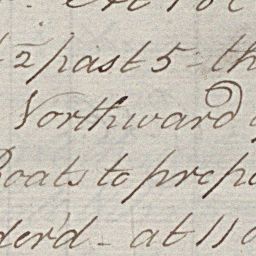 1/2 past 5 = th
Northward
Boats to prepa
der'd - at 11 o